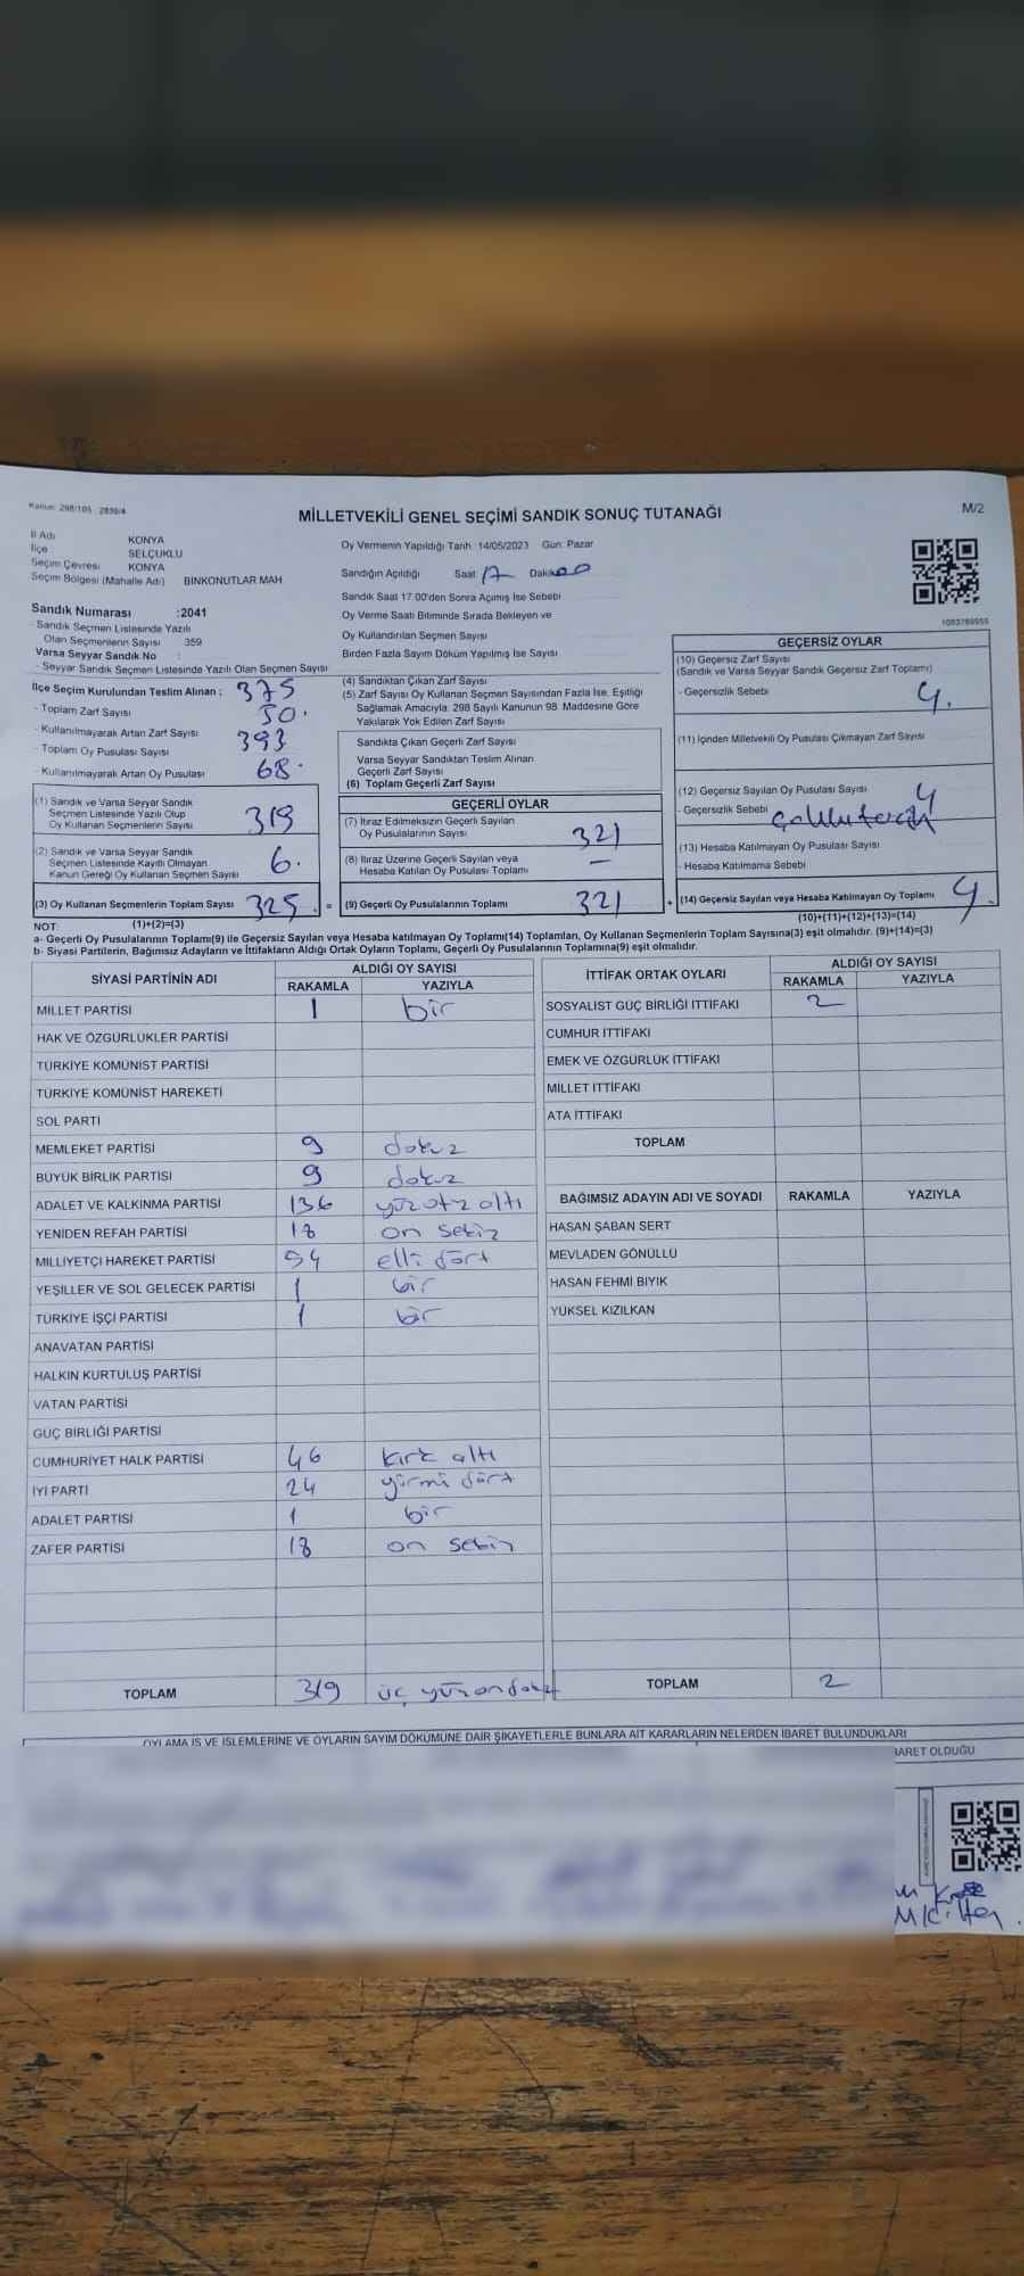 Kanun: 298/105 2839/4
MİLLETVEKİLİ GENEL SEÇİMİ SANDIK SONUÇ TUTANAĞI
M/2
İl Adı KONYA
İlçe SELÇUKLU
Seçim Çevresi KONYA
Seçim Bölgesi (Mahalle Adı) BİNKONUTLAR MAH
Oy Vermenin Yapıldığı Tarih: 14/05/2023 Gün: Pazar
Sandığın Açıldığı Saat 17 Dakika 00
Sandık Saat 17.00'den Sonra Açılmış İse Sebebi
Oy Verme Saati Bitiminde Sırada Bekleyen ve
Oy Kullandırılan Seçmen Sayısı
Birden Fazla Sayım Döküm Yapılmış İse Sayısı
1083789955
Sandık Numarası :2041
- Sandık Seçmen Listesinde Yazılı
Olan Seçmenlerin Sayısı 359
Varsa Seyyar Sandık No :
- Seyyar Sandık Seçmen Listesinde Yazılı Olan Seçmen Sayısı
İlçe Seçim Kurulundan Teslim Alınan ; 375
- Toplam Zarf Sayısı
- Kullanılmayarak Artan Zarf Sayısı 50.
- Toplam Oy Pusulası Sayısı 393
- Kullanılmayarak Artan Oy Pusulası 68.
(1) Sandık ve Varsa Seyyar Sandık
Seçmen Listesinde Yazılı Olup
Oy Kullanan Seçmenlerin Sayısı 319
(2) Sandık ve Varsa Seyyar Sandık
Seçmen Listesinde Kayıtlı Olmayan
Kanun Gereği Oy Kullanan Seçmen Sayısı 6.
(3) Oy Kullanan Seçmenlerin Toplam Sayısı 325. =
(4) Sandıktan Çıkan Zarf Sayısı
(5) Zarf Sayısı Oy Kullanan Seçmen Sayısından Fazla İse, Eşitliği
Sağlamak Amacıyla, 298 Sayılı Kanunun 98. Maddesine Göre
Yakılarak Yok Edilen Zarf Sayısı
Sandıkta Çıkan Geçerli Zarf Sayısı
Varsa Seyyar Sandıktan Teslim Alınan
Geçerli Zarf Sayısı
(6) Toplam Geçerli Zarf Sayısı
GEÇERLİ OYLAR
(7) İtiraz Edilmeksizin Geçerli Sayılan
Oy Pusulalarının Sayısı 321
(8) İtiraz Üzerine Geçerli Sayılan veya
Hesaba Katılan Oy Pusulası Toplamı —
(9) Geçerli Oy Pusulalarının Toplamı 321 +
GEÇERSİZ OYLAR
(10) Geçersiz Zarf Sayısı
(Sandık ve Varsa Seyyar Sandık Geçersiz Zarf Toplamı)
- Geçersizlik Sebebi 4.
(11) İçinden Milletvekili Oy Pusulası Çıkmayan Zarf Sayısı
(12) Geçersiz Sayılan Oy Pusulası Sayısı 4
- Geçersizlik Sebebi çoklu tercih
(13) Hesaba Katılmayan Oy Pusulası Sayısı
- Hesaba Katılmama Sebebi
(14) Geçersiz Sayılan veya Hesaba Katılmayan Oy Toplamı 4.
NOT: (1)+(2)=(3)
(10)+(11)+(12)+(13)=(14)
a- Geçerli Oy Pusulalarının Toplamı(9) ile Geçersiz Sayılan veya Hesaba katılmayan Oy Toplamı(14) Toplamları, Oy Kullanan Seçmenlerin Toplam Sayısına(3) eşit olmalıdır. (9)+(14)=(3)
b- Siyasi Partilerin, Bağımsız Adayların ve İttifakların Aldığı Ortak Oyların Toplamı, Geçerli Oy Pusulalarının Toplamına(9) eşit olmalıdır.
SİYASİ PARTİNİN ADI ALDIĞI OY SAYISI
RAKAMLA YAZIYLA
MİLLET PARTİSİ 1 bir
HAK VE ÖZGÜRLÜKLER PARTİSİ
TÜRKİYE KOMÜNİST PARTİSİ
TÜRKİYE KOMÜNİST HAREKETİ
SOL PARTİ
MEMLEKET PARTİSİ 9 dokuz
BÜYÜK BİRLİK PARTİSİ 9 dokuz
ADALET VE KALKINMA PARTİSİ 136 yüz otz altı
YENİDEN REFAH PARTİSİ 18 on sekiz
MİLLİYETÇİ HAREKET PARTİSİ 54 elli dört
YEŞİLLER VE SOL GELECEK PARTİSİ 1 bir
TÜRKİYE İŞÇİ PARTİSİ 1 bir
ANAVATAN PARTİSİ
HALKIN KURTULUŞ PARTİSİ
VATAN PARTİSİ
GÜÇ BİRLİĞİ PARTİSİ
CUMHURİYET HALK PARTİSİ 46 kırk altı
İYİ PARTİ 24 yirmi dört
ADALET PARTİSİ 1 bir
ZAFER PARTİSİ 18 on sekiz
TOPLAM 319 üç yüz on dokuz
İTTİFAK ORTAK OYLARI ALDIĞI OY SAYISI
RAKAMLA YAZIYLA
SOSYALİST GÜÇ BİRLİĞİ İTTİFAKI 2
CUMHUR İTTİFAKI
EMEK VE ÖZGÜRLÜK İTTİFAKI
MİLLET İTTİFAKI
ATA İTTİFAKI
TOPLAM
BAĞIMSIZ ADAYIN ADI VE SOYADI RAKAMLA YAZIYLA
HASAN ŞABAN SERT
MEVLADEN GÖNÜLLÜ
HASAN FEHMİ BIYIK
YÜKSEL KIZILKAN
TOPLAM 2
OYLAMA İŞ VE İŞLEMLERİNE VE OYLARIN SAYIM DÖKÜMÜNE DAİR ŞİKAYETLERLE BUNLARA AİT KARARLARIN NELERDEN İBARET BULUNDUKLARI
BARET OLDUĞU